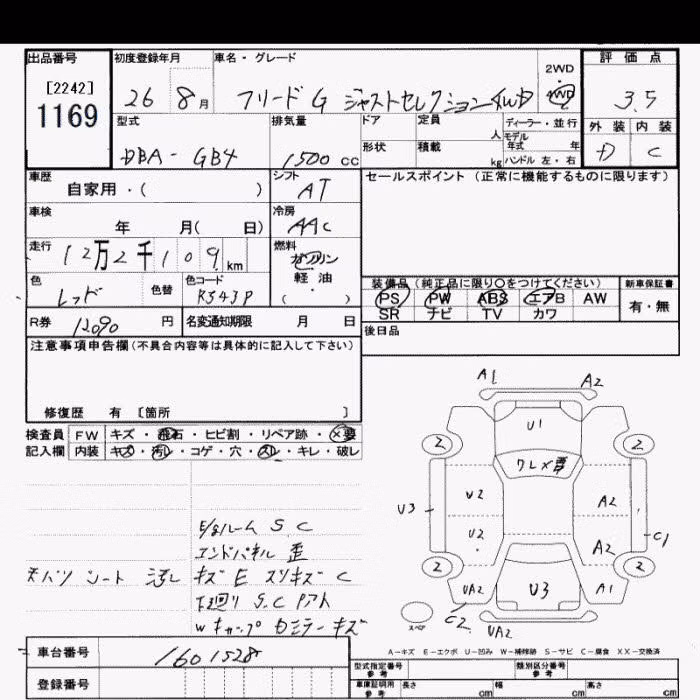 出品番号 初度登録年月 車名・グレード 2WD・4WD 評価点
[2242]
1169
26 8月 フリード G ジャストセレクション 4WD 3.5
型式 排気量 ドア 定員 人 ディーラー・並行 外装 内装
DBA-GB4 1500cc 形状 積載 kg モデル年式 年 D C
ハンドル 左・右
車歴 シフト セールスポイント (正常に機能するものに限ります)
自家用・( ) AT
車検 冷房
年 月( 日) AAC
走行 燃料
12万2千109km ガソリン
軽油
( ・ )
色 色替 色コード 装備品 (純正品に限り○をつけてください) 新車保証書
レッド R543P PS PW ABS エアB AW 有・無
SR ナビ TV カワ
R券 12090 円 名変通知期限 月 日 後日品
注意事項申告欄 (不具合内容等は具体的に記入して下さい)
修復歴 有 [箇所 ]
検査員 FW キズ・飛石・ヒビ割・リペア跡・×要
記入欄 内装 キズ・汚レ・コゲ・穴・スレ・キレ・破レ
A1 A2
U1
2 2
ワレ×要
U3 U2 A2
U2 A2 C1
2 2
UA2 U3 A1
C2 UA2
スペア
E/gルーム S.C
エンドパネル 歪
天バリ シート 汚レ キズ E スリキズ C
下廻り S.C
Wキャップ Dミラーキズ
A-キズ E-エクボ U-凹み W-補修跡 S-サビ C-腐食 XX-交換済
車台番号 1601528 型式指定番号 参考 類別区分番号 参考
登録番号 車庫証明用 参考 長さ cm 幅 cm 高さ cm